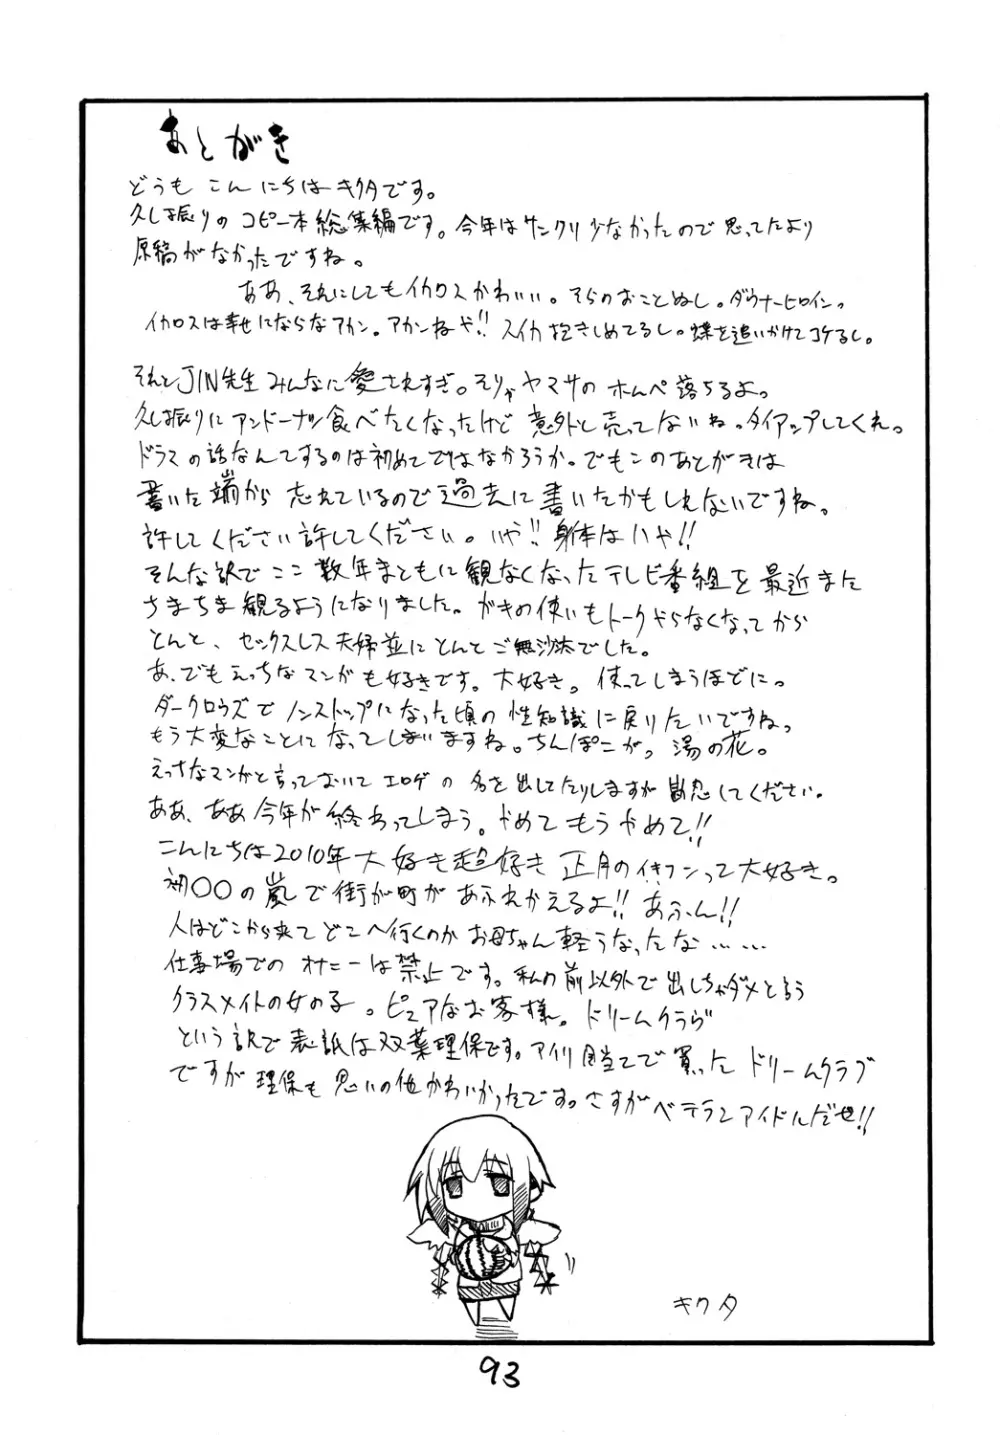 あとがき
どうも こんにちは キクタです。
久し振りの コピー本総集編です。今年は サンクリ少なかったので思ってたより
原稿がなかったですね。
ああ、それにしてもイカロスかわいい。そらのおとしぬし。ダウナーヒロイン。
イカロスは幸せにならなアカン。アカンねや!! スイカ抱きしめてるし。蝶を追いかけてコケるし。
それとJIN先生みんなに愛されすぎ。そりゃヤマサの ホムペ落ちるよ。
久し振りに アンドーナツ食べたくなったけど 意外と売ってないね。タイアップしてくれ。
ドラマの話なんてするのは初めてではなかろうか。でもこのあとがきは
書いた端から 忘れているので過去に書いたかもしれないですね。
許してください許してください。いや!! 身体はいや!!
そんな訳で ここ数年まともに観なくなったテレビ番組を最近また
ちまちま観るようになりました。ガキの使いもトークやらなくなってから
とんと、セックスレス夫婦並にとんとご無沙汰でした。
あ、でもえっちなマンガも好きです。大好き。使ってしまうほどに。
ダークロウズでノンストップになった頃の性知識に戻りたいですね。
もう大変なことになってしまいますね。ちんぽこがっ 湯の花。
えっちなマンガと言っておいて エロゲの 名を出してたりしますが勘忍してください。
ああ、ああ今年が終わってしまう。やめて もうやめて!!
こんにちは2010年大好き超好き 正月のイキフンって大好き。
初〇〇の嵐で街が町があふれかえるよ!! あふん!!
人はどこから来てどこへ行くのか お母ちゃん軽うなったな……
仕事場でのオナニーは禁止です。私の前以外で出しちゃダメと言う
クラスメイトの女の子。ピュアなお客様。ドリームクラブ
という訳で表紙は双葉理保です。アイリ目当てで買ったドリームクラブ
ですが理保も思いの他かわいかったです。さすがベテランアイドルだぜ!!
キクタ
93